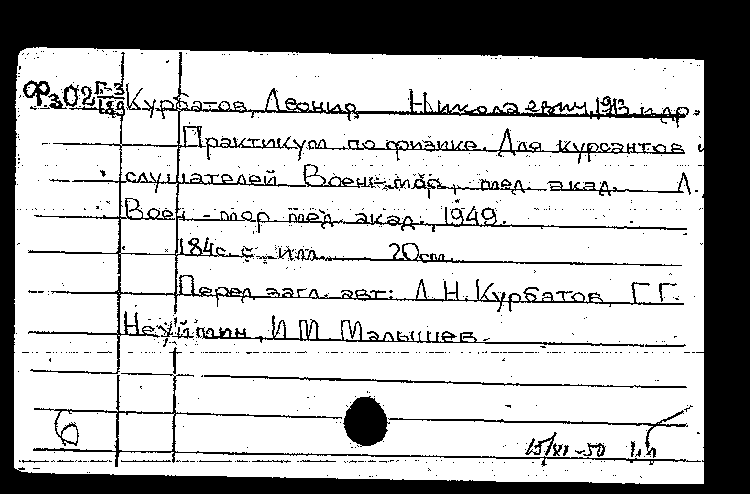 Фз02 Г-3/189 Курбатов, Леонид Николаевич, 1913 и др.
Практикум по физике. Для курсантов и
слушателей Воен-мор. мед. акад. Л.,
Воен-мор. мед. акад., 1949.
184с. с илл. 20см.
Перед загл. авт: Л.Н. Курбатов, Г.Г.
Неуймин, И.М. Малышев.
6
15/XI-50